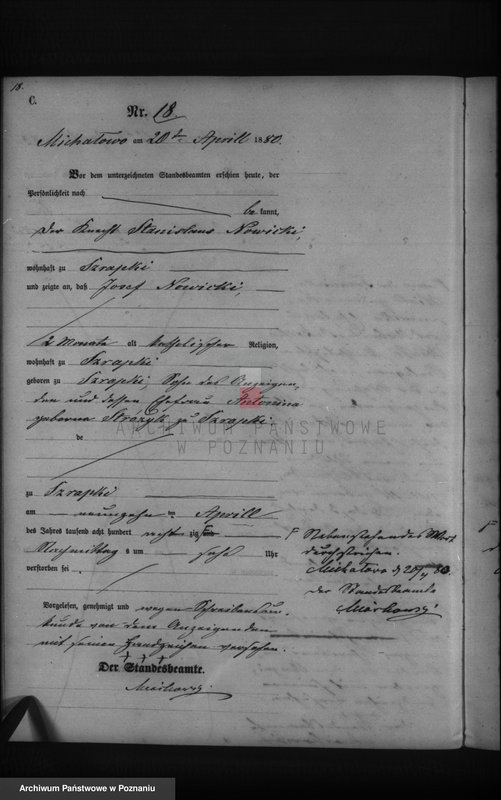 18.
C.
Nr. 18
Michałowo am 20ten Aprill 1880.
Vor dem unterzeichneten Standesbeamten erschien heute, der
Persönlichkeit nach
bekannt,
der Knecht Stanislaus Nowicki,
wohnhaft zu Szrapki
und zeigte an, daß Josef Nowicki,
2 Monate alt katholischer Religion,
wohnhaft zu Szrapki
geboren zu Szrapki, Sohn des Anzeigen-
den und dessen Ehefrau Antonina
geborne Strózyk zu Szrapki.
ARCHIWUM PAŃSTWOWE
W POZNANIU
de
zu Szrapki
am neunzehn ten Aprill
des Jahres tausend acht hundert acht zig
Nachmittag s um sechs Uhr
verstorben sei.
Vorgelesen, genehmigt und wegen Schreibensun-
kunde von dem Anzeigenden
mit seinen Handzeichen versehen.
+ + +
Der Standesbeamte.
Nebenstehendes Wort
durchstrichen.
Michałowo d 20/4 80.
der Standesbeamte
Archiwum Państwowe w Poznaniu